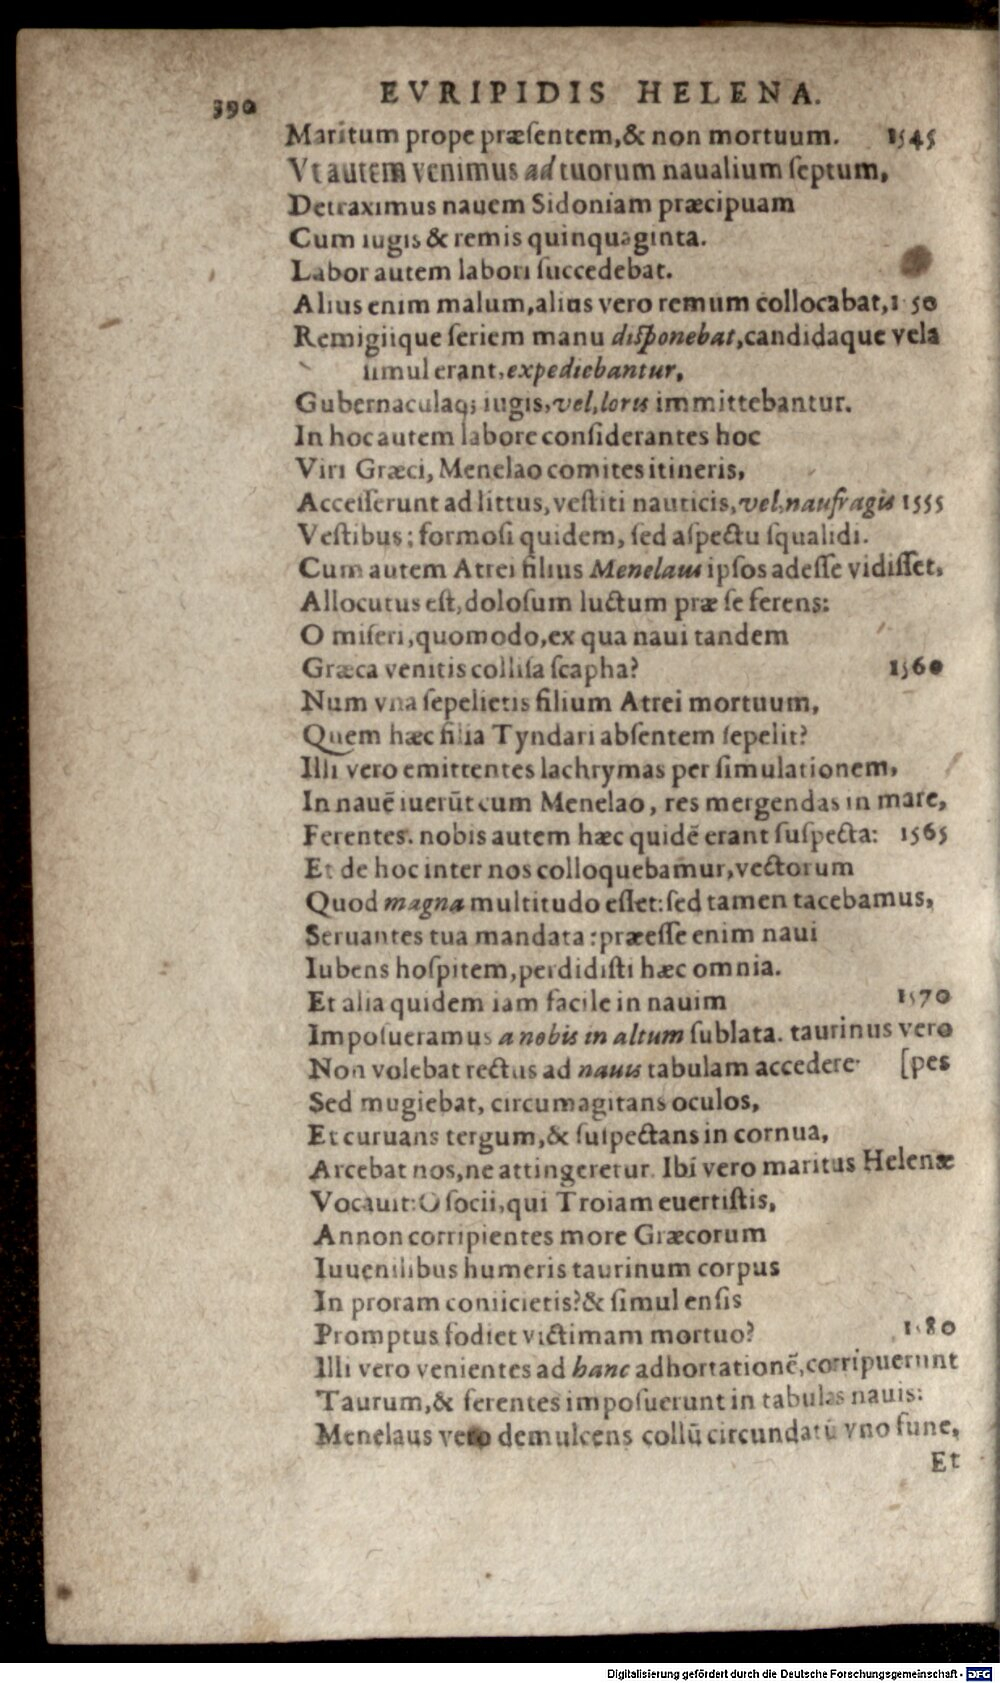 390 EVRIPIDIS HELENA.
Maritum prope præſentem,& non mortuum. 1545
Vt autem venimus ad tuorum naualium ſeptum,
Detraximus nauem Sidoniam præcipuam
Cum iugis & remis quinquaginta.
Labor autem labori ſuccedebat.
Alius enim malum,alius vero remum collocabat,1 50
Remigiique ſeriem manu diſponebat,candidaque vela
ſimul erant,expediebantur,
Gubernaculaq; iugis,vel,loris immittebantur.
In hoc autem labore conſiderantes hoc
Viri Græci, Menelao comites itineris,
Acceſſerunt ad littus, veſtiti nauticis,vel,naufragis 1555
Veſtibus; formoſi quidem, ſed aſpectu ſqualidi.
Cum autem Atrei filius Menelaus ipſos adeſſe vidiſſet,
Allocutus eſt,doloſum luctum præ ſe ferens:
O miſeri,quomodo,ex qua naui tandem
Græca venitis colliſa ſcapha? 1560
Num vna ſepelietis filium Atrei mortuum,
Quem hæc filia Tyndari abſentem ſepelit?
Illi vero emittentes lachrymas per ſimulationem,
In nauē iuerūt cum Menelao, res mergendas in mare,
Ferentes. nobis autem hæc quidē erant ſuſpecta: 1565
Et de hoc inter nos colloquebamur,vectorum
Quod magna multitudo eſſet:ſed tamen tacebamus,
Seruantes tua mandata:præeſſe enim naui
Iubens hoſpitem,perdidiſti hæc omnia.
Et alia quidem iam facile in nauim 1570
Impoſueramus a nobis in altum ſublata. taurinus vero
Non volebat rectus ad nauis tabulam accedere [pes
Sed mugiebat, circumagitans oculos,
Et curuans tergum,& ſuſpectans in cornua,
Arcebat nos,ne attingeretur. Ibi vero maritus Helenæ
Vocauit:O ſocii,qui Troiam euertiſtis,
Annon corripientes more Græcorum
Iuuenilibus humeris taurinum corpus
In proram coniicietis?& ſimul enſis
Promptus fodiet victimam mortuo? 1 80
Illi vero venientes ad hanc adhortationē,corripuerunt
Taurum,& ferentes impoſuerunt in tabulas nauis:
Menelaus vero demulcens collū circundatū vno fune,
Et
Digitalisierung gefördert durch die Deutsche Forschungsgemeinschaft - DFG